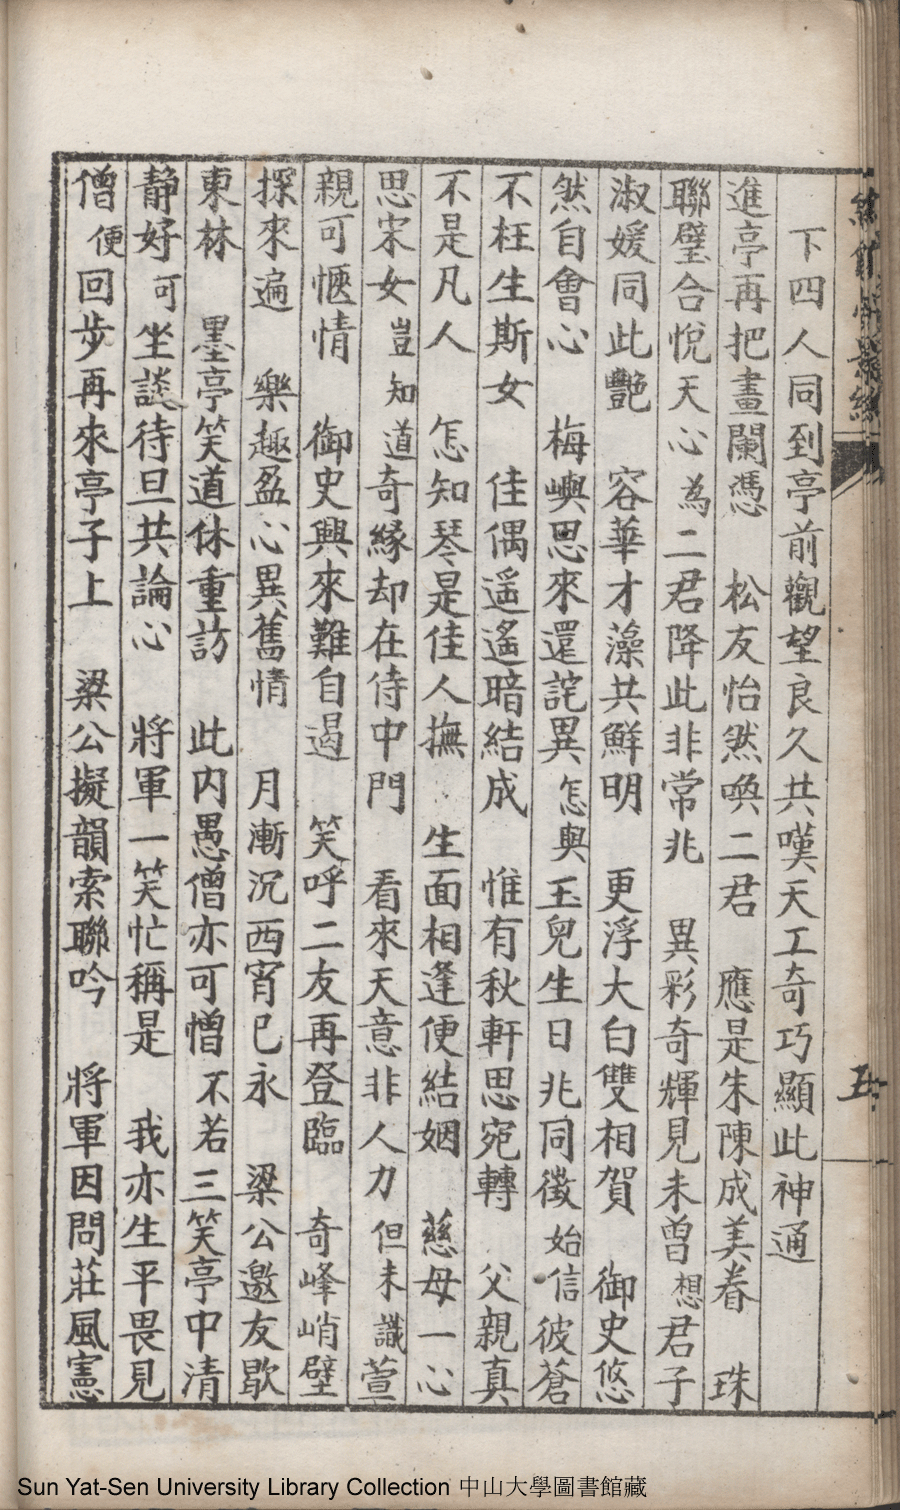 下四人同到亭前觀望良久共嘆天工奇巧顯此神通
進亭再把畫闌憑　松友怡然喚二君　應是朱陳成美眷　珠
聯璧合悅天心為二君降此非常兆　異彩奇輝見未曾想君子
淑媛同此艷　容華才藻共鮮明　更浮大白雙相賀　御史悠
然自會心　梅嶼思來還詫異怎與玉兒生日兆同徵始信彼蒼
不枉生斯女　佳偶遥遙暗結成　惟有秋軒思宛轉　父親真
不是凡人　怎知琴是佳人撫　生面相逢便結姻　慈母一心
思宋女豈知道奇緣却在侍中門　看來天意非人力但未識萱
親可愜情　御史興來難自遏　笑呼二友再登臨　奇峰峭壁
探來遍　樂趣盈心異舊情　月漸沉西宵已永　梁公邀友歇
東林　墨亭笑道休重訪　此內愚僧亦可憎不若三笑亭中清
靜好可坐談待旦共論心　將軍一笑忙稱是　我亦生平畏見
僧便回步再來亭子上　梁公擬韻索聯吟　將軍因問莊風憲
五
Sun Yat-Sen University Library Collection 中山大學圖書館藏